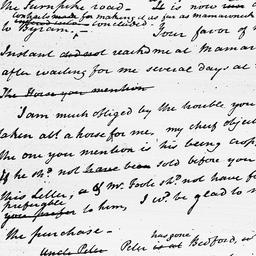 the Turnpike road - It is now
contract made for making it as far as Mamaroneck
to Byram, concluded.
Your favor of
Instant did not reached me at Mamar
after waiting for me several days at
The Horse you mention
I am much obliged by the trouble you
taken abt. a horse for me, my chief objec
the one you mention is his being crop
If he shd. not have been sold before you
this Letter, & Mr. Foote shd. not have
preferable
you prefer to him, I wd. be glad to
the purchase -
has gone
Uncle Peter Peter is at Bedford,